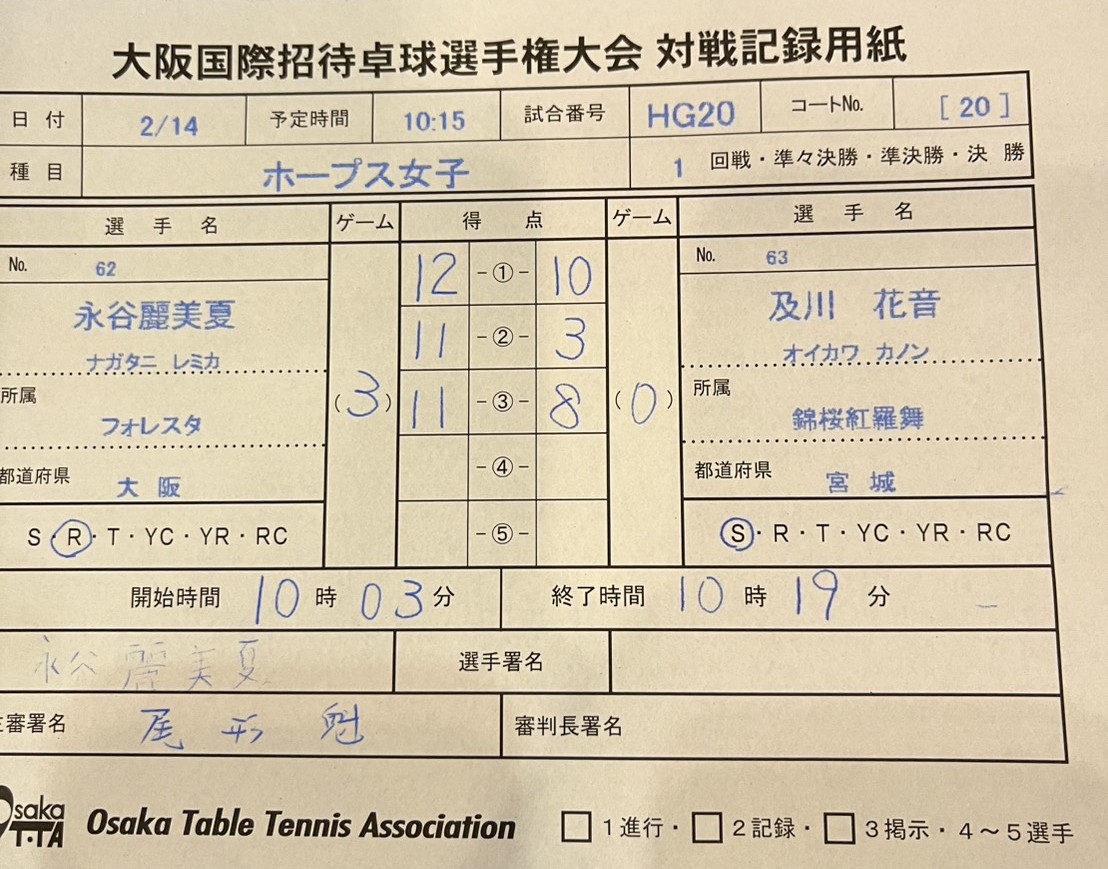 大阪国際招待卓球選手権大会 対戦記録用紙
日 付 2/14 予定時間 10:15 試合番号 HG20 コートNo. [ 20 ]
種 目 ホープス女子 1 回戦・準々決勝・準決勝・決 勝
選 手 名 ゲーム 得 点 ゲーム 選 手 名
No. 62 12 -①- 10 No. 63
永谷麗美夏 11 -②- 3 及川 花音
ナガタニ レミカ オイカワ カノン
所属 (3) 11 -③- 8 (0) 所属
フォレスタ 錦桜紅羅舞
都道府県 大 阪 -④- 都道府県 宮 城
S・R・T・YC・YR・RC -⑤- S・R・T・YC・YR・RC
開始時間 10 時 03 分 終了時間 10 時 19 分
永谷 麗美夏 選手署名
主審署名 尾形 魁 審判長署名
Osaka T・TA Osaka Table Tennis Association □1進行・□2記録・□3掲示・4～5選手